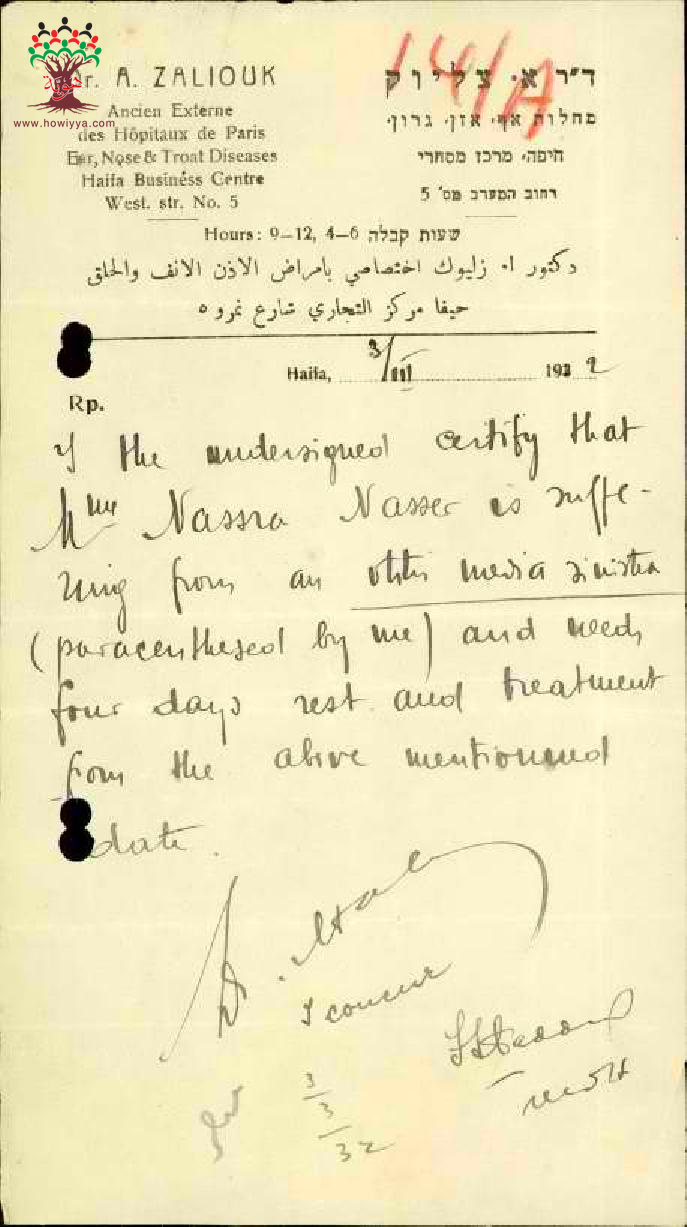 14/A
Dr. A. ZALIOUK
Ancien Externe
des Hôpitaux de Paris
Ear, Nose & Troat Diseases
Haifa Business Centre
West. str. No. 5
ד״ר א. צליוק
מחלות אף, אזן, גרון,
חיפה, מרכז מסחרי
רחוב המערב מס׳ 5
www.howiyya.com
Hours: 9–12, 4–6 שעות קבלה
دكتور ا. زليوك اختصاصي بامراض الاذن الانف والحلق
حيفا مركز التجاري شارع نمرو ٥
Haifa, 3/III 1932
Rp.
I the undersigned certify that
Mme Nassra Nasser is suffe-
ring from an otitis media sinistra
(paracenthesed by me) and needs
four days rest and treatment
from the above mentionned
date.
Dr.
I concur
3
3
32